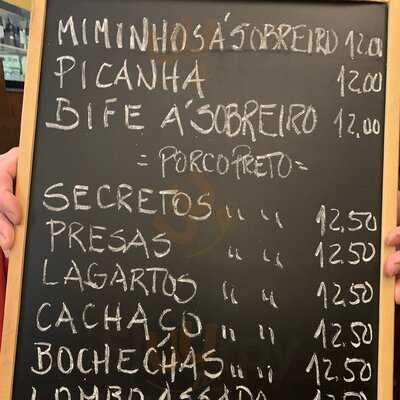 MIMINHOS Á SOBREIRO 12.00
PICANHA 12.00
BIFE Á SOBREIRO 12.00
= PORCO PRETO =
SECRETOS " " 12.50
PRESAS " " 12.50
LAGARTOS " " 12.50
CACHAÇO " " 12.50
BOCHECHAS " " 12.50
LOMBO ASSADO 12.50